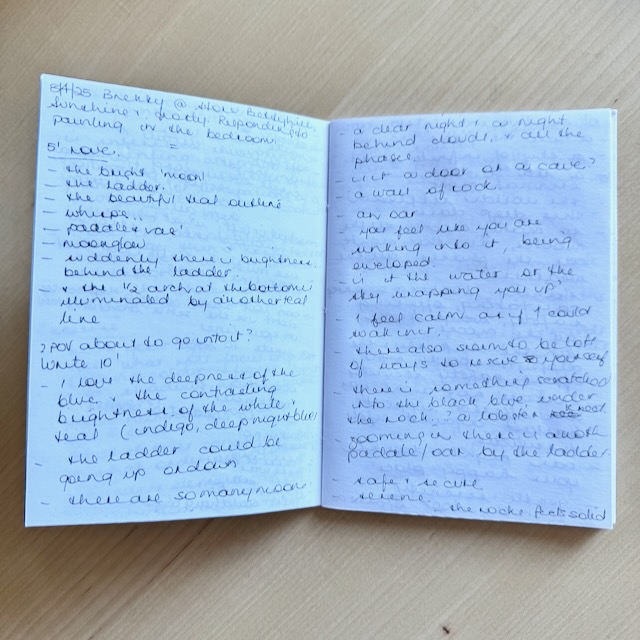 8/4/25 Brekky @
Sunshine + Responding to
painting in the bedroom.
5' love.
- the bright 'moon'
- the ladder.
- the beautiful teal outline
- whisps..
- paddle +
- moonglow
- suddenly there is brightness
behind the ladder.
- + the 1/2 arch at the bottom is
illuminated by another teal
line
? POV about to go into it?
Write 10'
- I love the deepness of the
blue, + the contrasting
brightness of the white +
teal (indigo, deep night blue)
- the ladder could be
going up or down
- there are so many moons
- a clear night + a night
behind clouds, + all the
phases.
- is it a door or a cave?
a wall of rock
- an oar
- you feel like you are
sinking into it, being
eveloped.
- is it the water or the
sky wrapping you up?
- I feel calm, as if I could
wait in it.
- there also seem to be lots
of ways to rescue yourself
- there is something scratched
into the black blue under
the rock. ? a lobster
- zooming in there is another
paddle/oar by the ladder.
- safe + secure
- serene
- the rocks feels solid